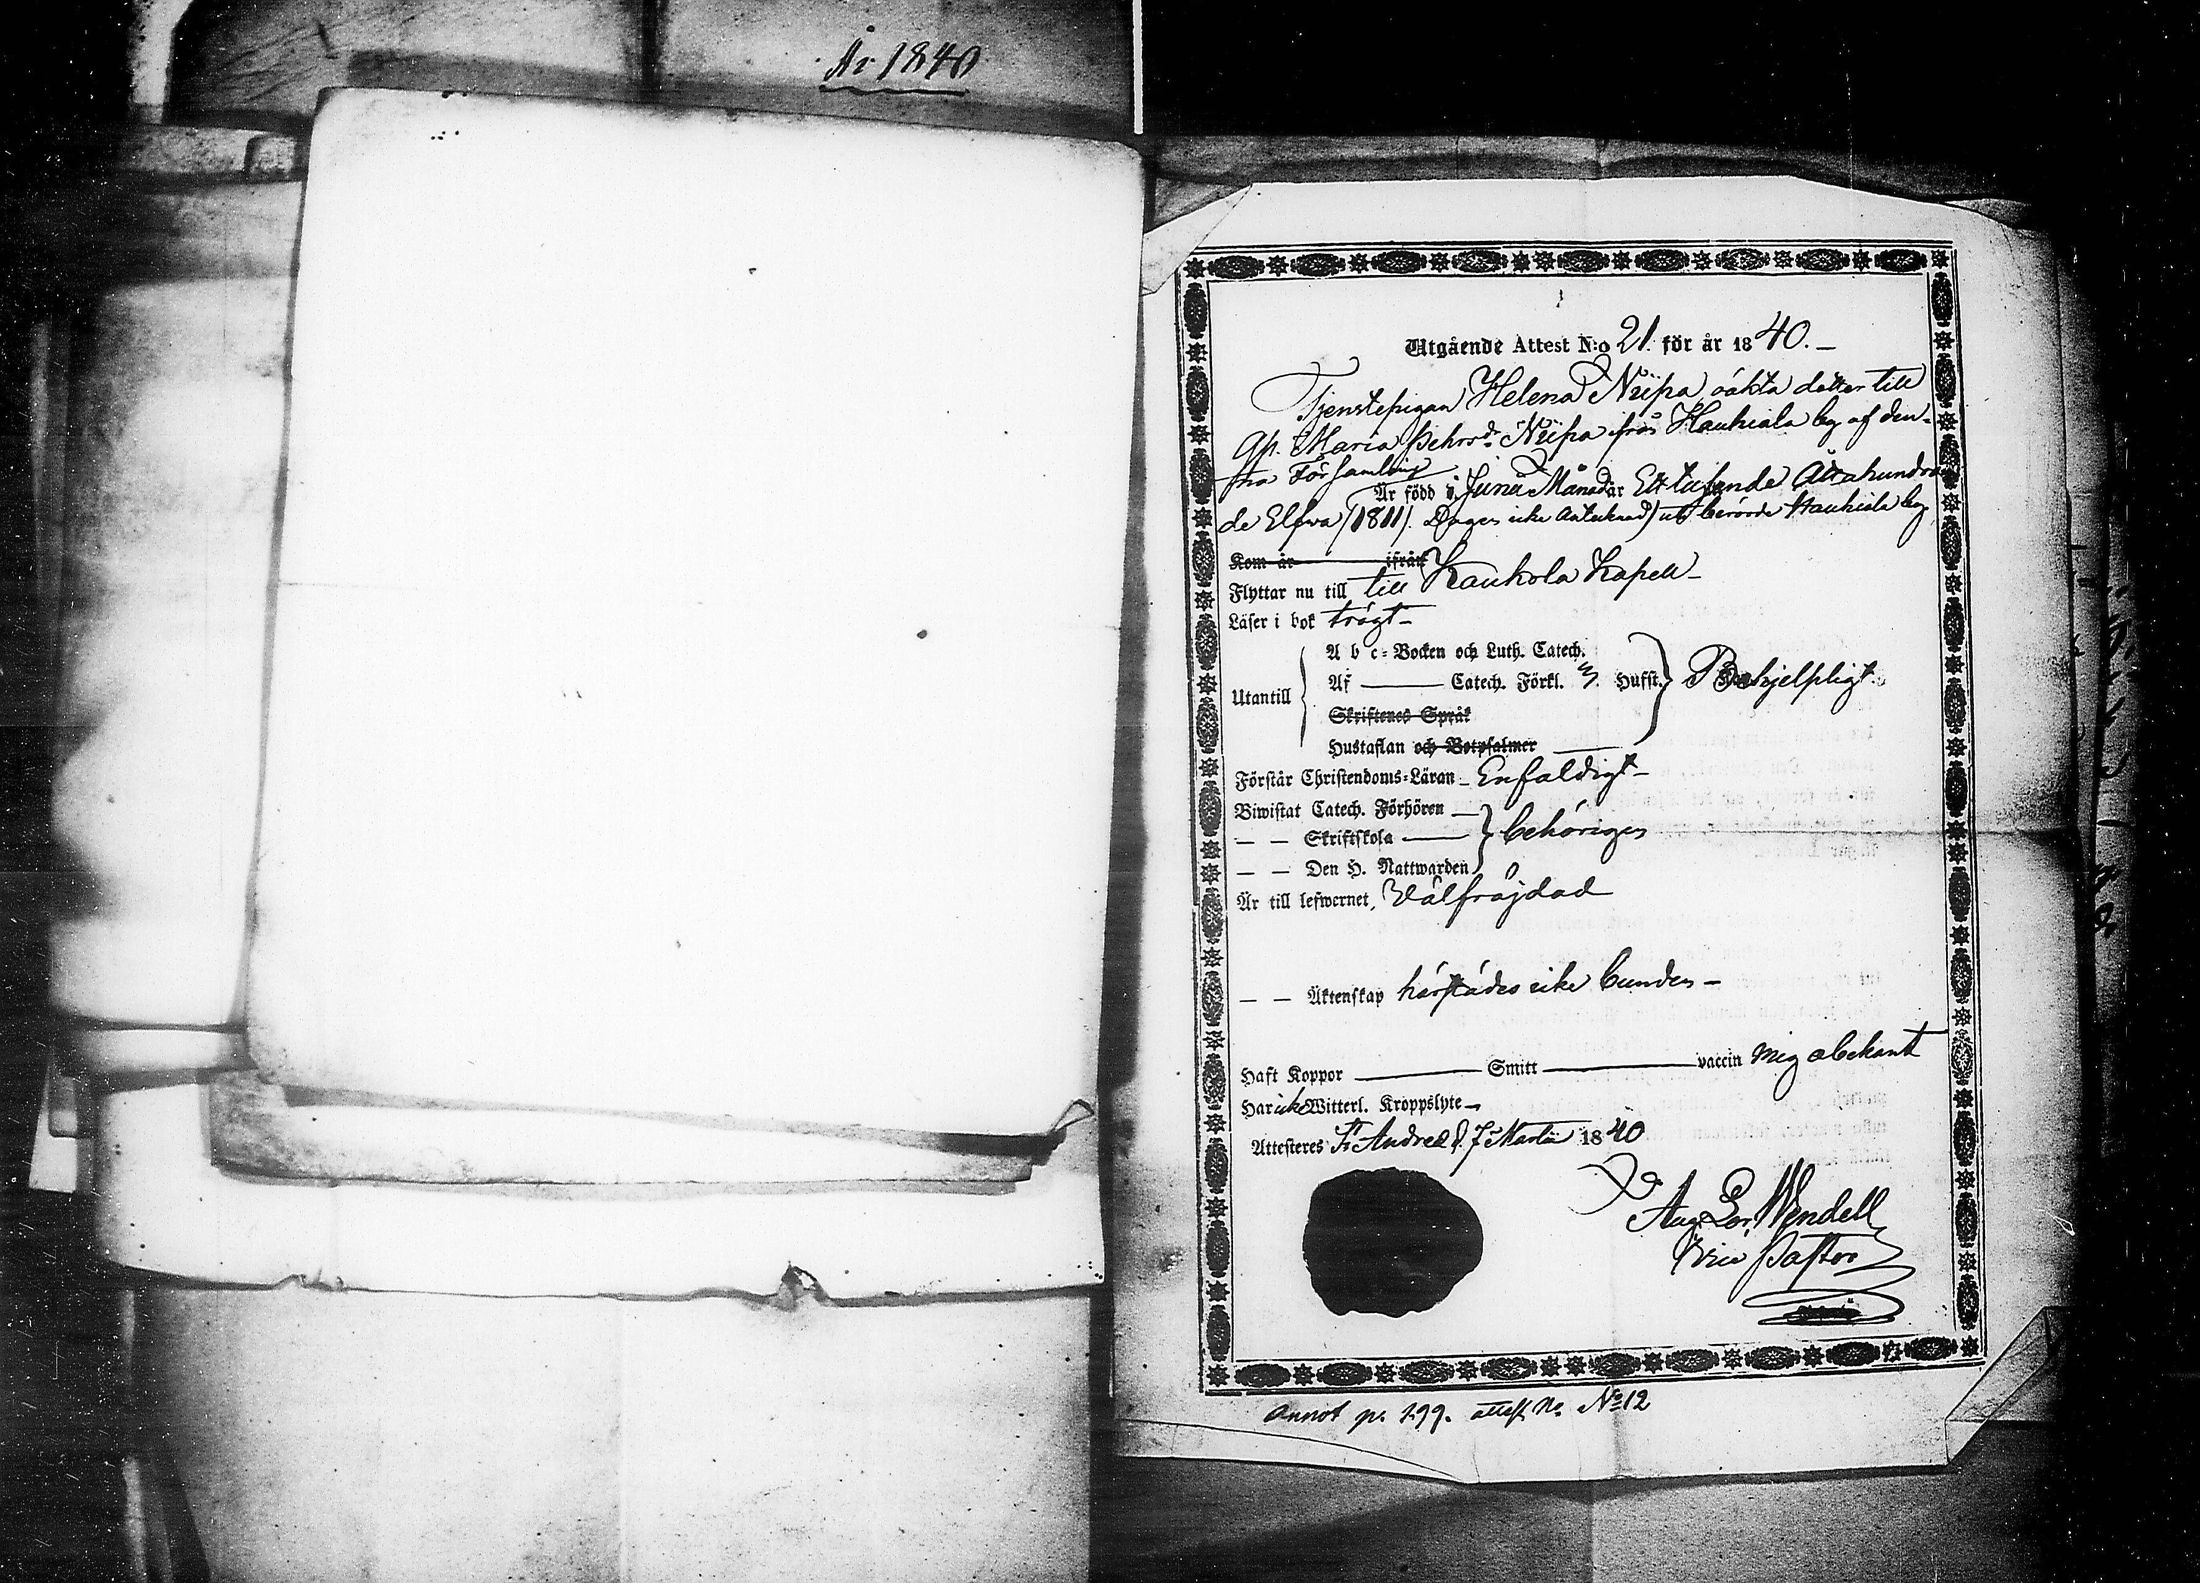 År 1840
Utgående Attest N:o 21. för år 1840.
Tjenstepigan Helena Niipa, oäkta dotter till
Qp. Maria Pehrsdr Niipa från Haukiala by af den-
na Församling
Är född i Junii Månad år Ett tusende Åttahundra
de Elfva (1811). Dagen icke antecknad) uti berörde Haukiala by
Kom år ifrån
Flyttar nu till till Kaukola Kapell
Läser i bok trögt
A b c-Bocken och Luth. Catech.
Utantill Af Catech. Förkl. 3. Hufst. Behjelpligt
Skriftenes Språk
Hustaflan och Botpsalmer
Förstår Christendoms-Läran Enfaldigt
Biwistat Catech. Förhören
— — Skriftskola behörigen
— — Den H. Nattwarden
Är till lefwernet, Välfräjdad
— — Äktenskap härstädes icke bunden
Haft Koppor Smitt vaccin mig obekant
Har icke Witterl. Kroppslyte
Attesteres St Andreæ d. 7 Martii 1840
Aug. Lor. Wendell
Vice Pastor
Annot p. 199. attest No. No 12